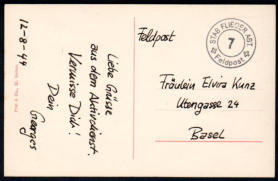 12-8-44
Liebe Grüsse
aus dem Aktivdienst.
Vermisse Dich!
Dein
Georges
Feldpost
STAB FLIEGER ABT.
7
Feldpost
Fräulein Elvira Kunz
Utengasse 24
Basel